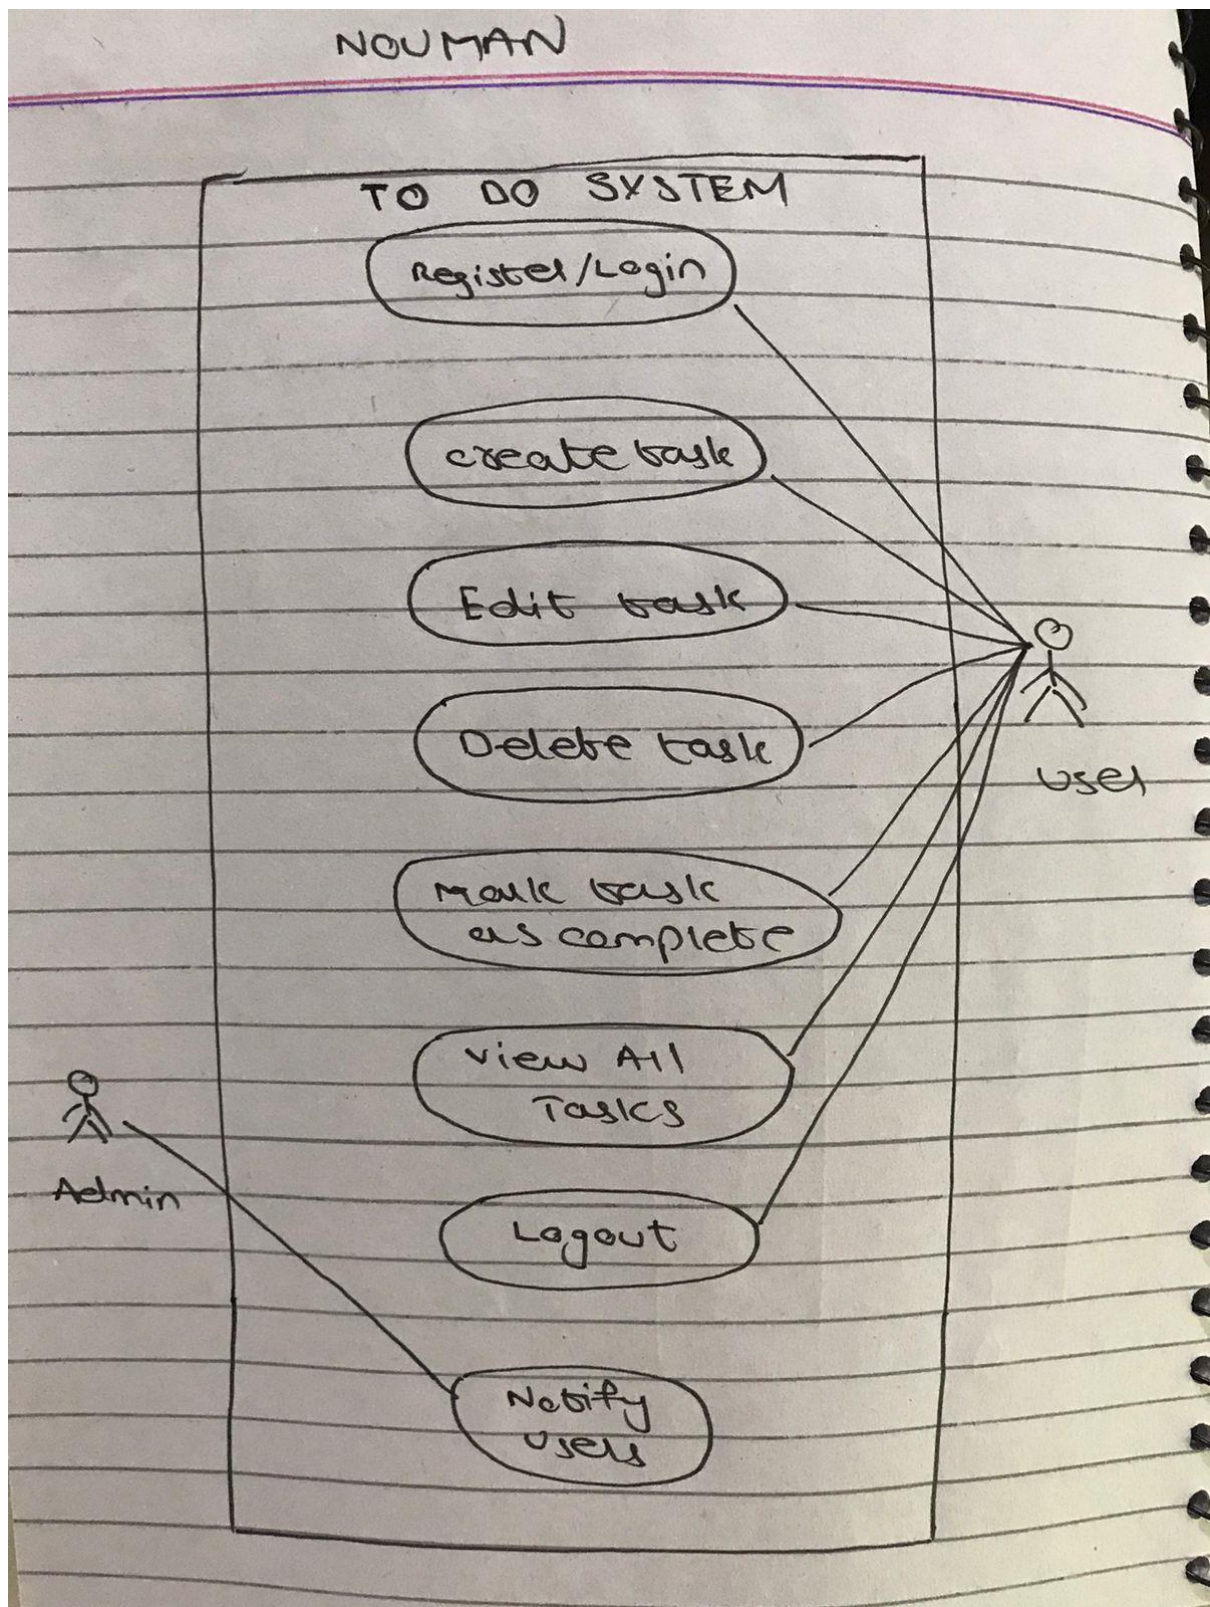 NOUMAN
TO DO SYSTEM
Register/Login
create task
Edit task
Delete task
User
Mark task
as complete
View All
Tasks
Admin
Logout
Notify
users